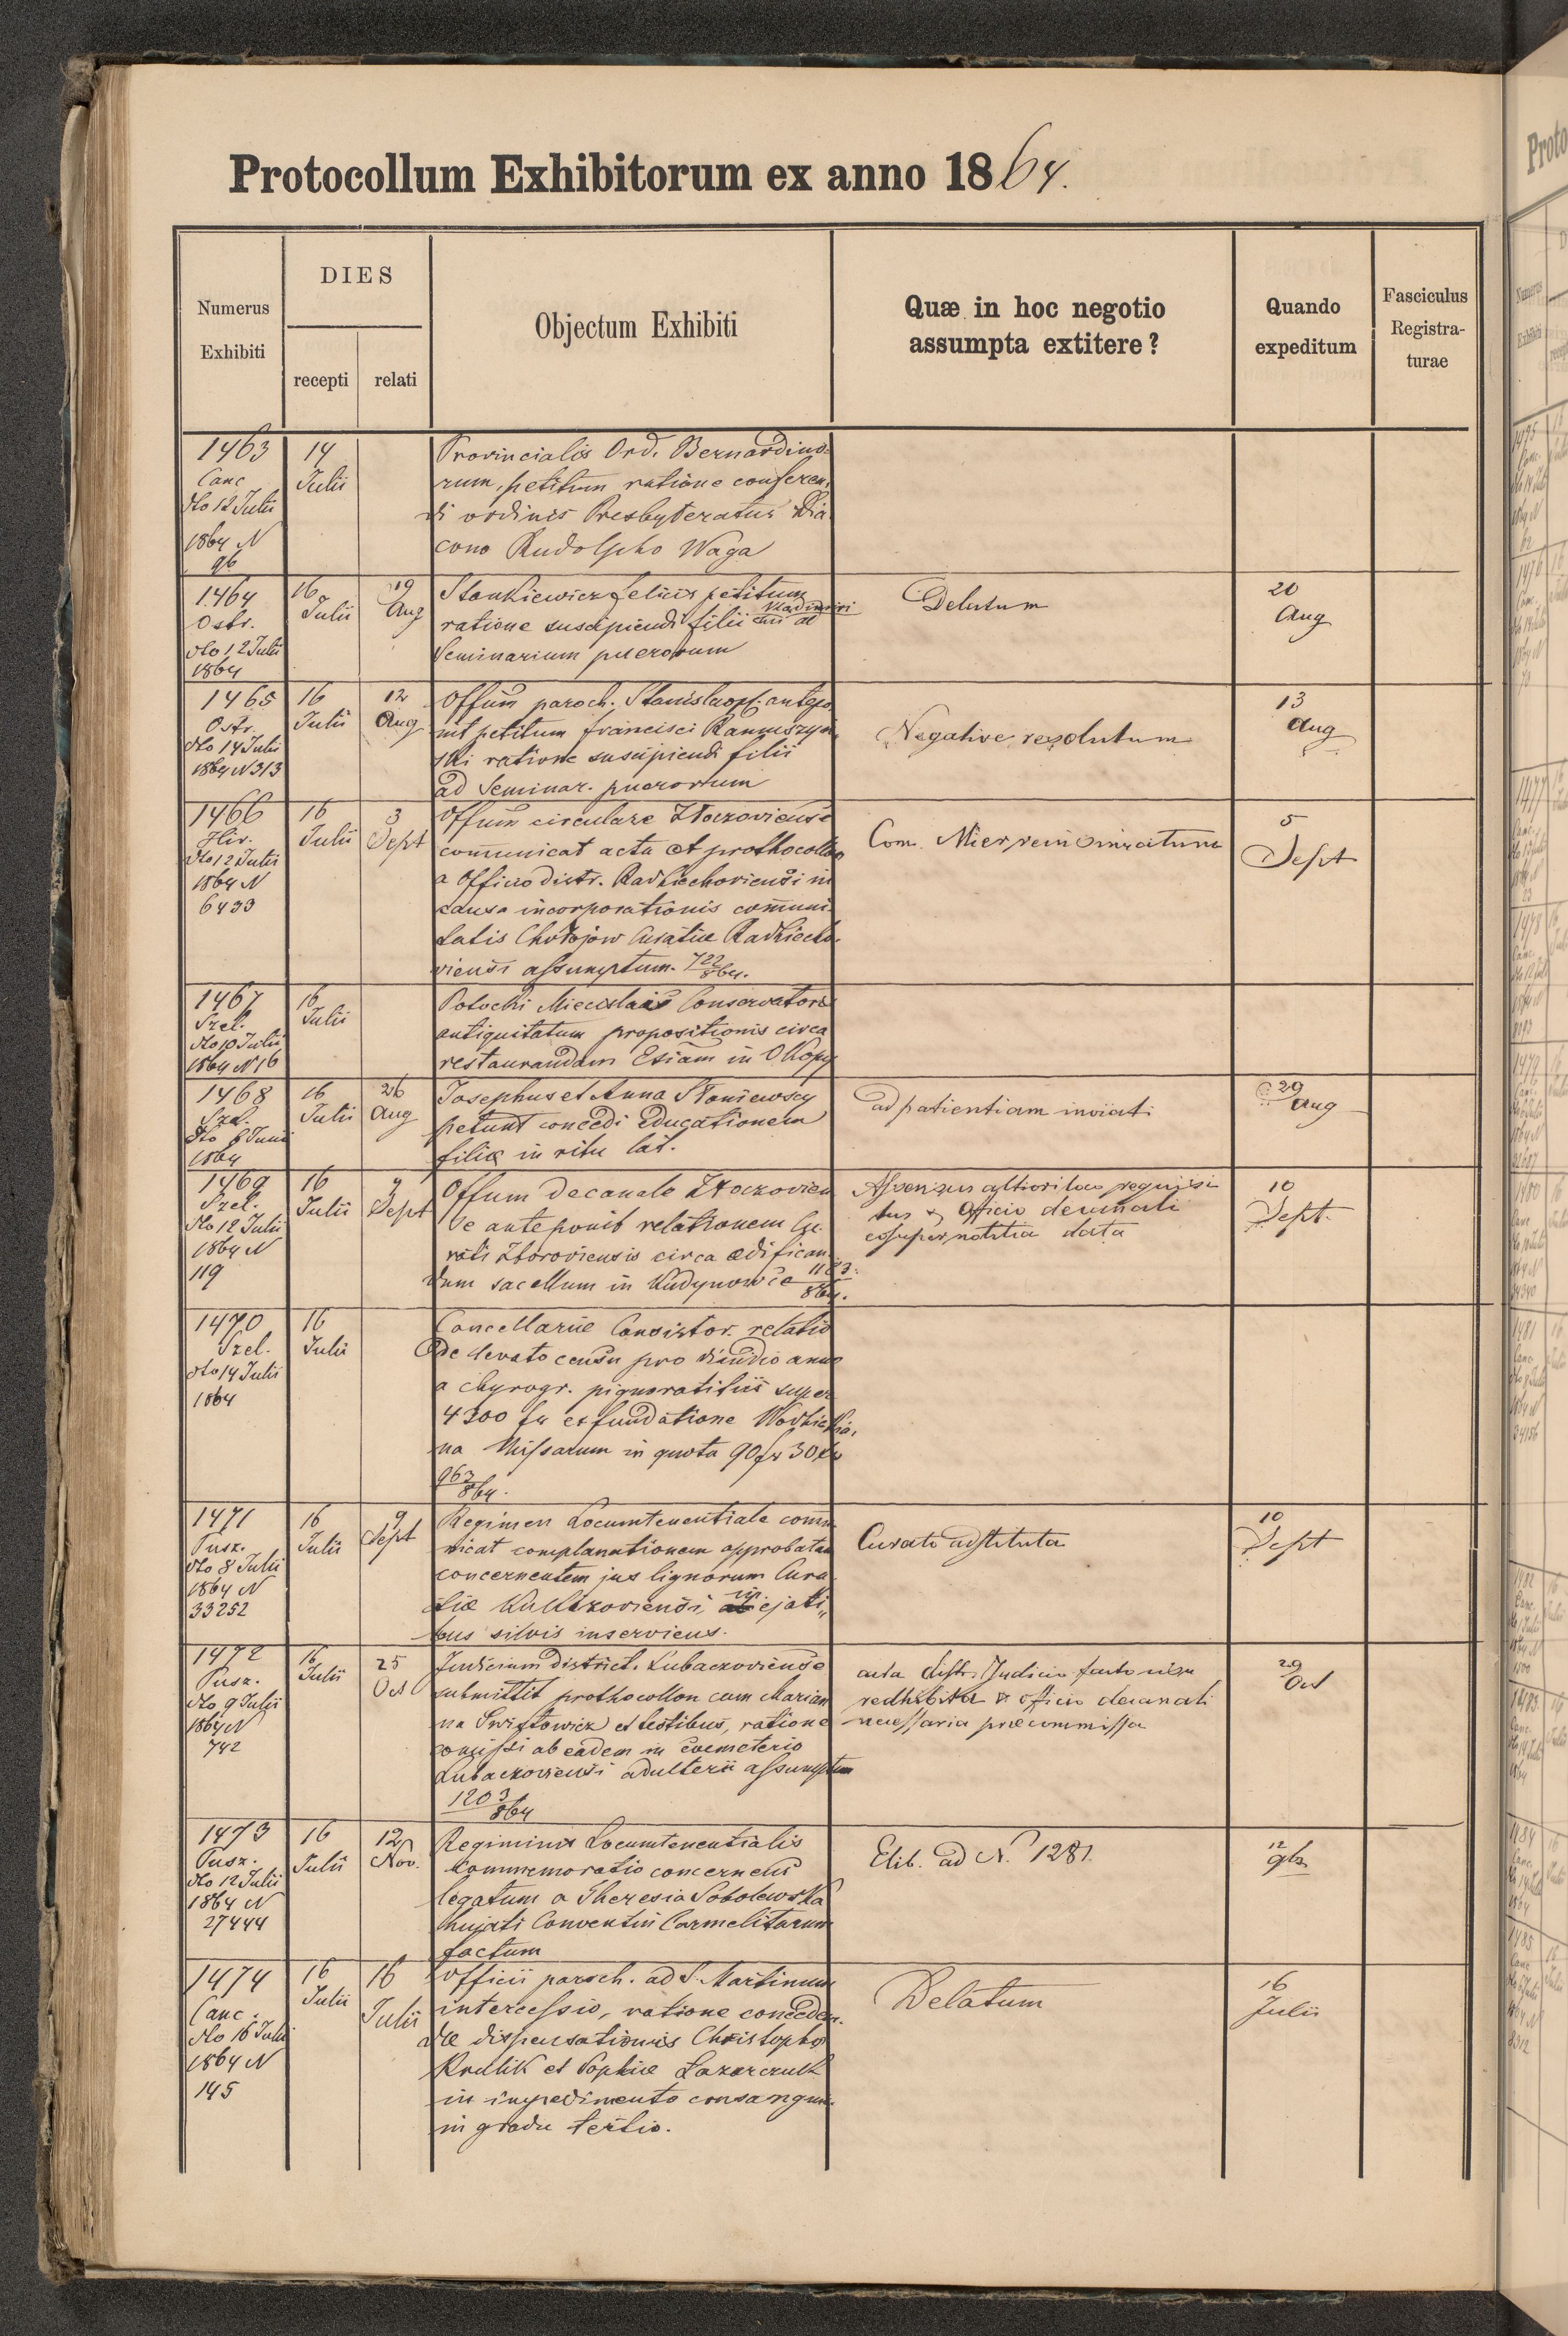 Protocollum Exhibitorum ex anno 1864.
Numerus Exhibiti
DIES
recepti
relati
Objectum Exhibiti
Quæ in hoc negotio
assumpta extitere?
Quando
expeditum
Fasciculus
Registra-
turae
1463
Canc
dto 12 Julii
1864 N
96
14
Julii
Provincialis Ord. Bernardino-
rum, petitum ratione conferen-
di ordinis Presbyteratus Dia-
cono Rudolpho Waga
1464
Ostr.
dto 12 Julii
1864
16
Julii
19
Aug
Stankiewicz Felicis petitum
ratione suscipiendi filii sui Vladimiri ad
Seminarium puerorum
Delatum
20
Aug
1465
Ostr.
dto 14 Julii
1864 N 313
16
Julii
12
Aug
Offum paroch. Stanislaopl. antepo
nit petitum Francisci
ski ratione suscipiendi filii
ad Seminar. puerorum
Negative resolutum
13
Aug
1466
Hir.
dto 12 Julii
1864 N
6433
16
Julii
3
Sept
Offum circulare Złoczoviense
communicat acta et prothocollon
a Officio distr. Radziechoviensi in
causa incorporationis communi
tatis Chołojow Curatiæ Radziecho-
viensi assumptum. 722/864.
Com.
5
Sept
1467
Szel.
dto 10 Julii
1864 N 16
16
Julii
Potocki Miecislai Conservatoris
antiquitatum propositionis circa
restaurandam Ecclam in Okopy
1468
Szel.
dto 6 Junii
1864
16
Julii
26
Aug
Josephus et Anna Staniewscy
petunt concedi educationem
filiæ in ritu lat.
ad patientiam inviati
29
Aug
1469
Szel.
dto 12 Julii
1864 N
119
16
Julii
9
Sept
Offum decanale Złoczovien
se anteponit relationem Cu-
rati Zboroviensis circa ædifican-
dum sacellum in Kudynowce 1183/864.
Assensus altiori loco requisi
tus & Officio decanali
eosuper notitia data
10
Sept.
1470
Szel.
dto 14 Julii
1864
16
Julii
Cancellariæ Consistor. relatio
de levato censu pro dimidio anno
a chyrogr. pignoratitiis super
4300 fr ex fundatione
na Missarum in quota 90 fr 30 xr
963/864.
1471
Pusz.
dto 8 Julii
1864 N
33252
16
Julii
9
Sept
Regimen Locumtenentiale commu
nicat complanationem approbatam
concernentem jus lignorum Cura
tiæ Kulikoviensi, in ejati
bus silvis inserviens.
Curato adstituta
10
Sept
1472
Pusz.
dto 9 Julii
1864 N
742
16
Julii
25
Oct
Judicium district. Lubaczoviense
submittit prothocollon cum Marian
na Swistowicz et testibus, ratione
comissi ab eadem in coemeterio
Lubaczoviensi adulterii assumptum
1203/864
acta distr. Judicio facto usu
redhibita & officio decanali
necessaria præcommissa
29
Oct
1473
Pusz.
dto 12 Julii
1864 N
27444
16
Julii
12
Nov.
Regiminis Locumtenentialis
Commemoratio concernens
legatum a Theresia Sobolewska
hujati Conventui Carmelitarum
factum
Elib. ad N. 1281.
12
9br
1474
Canc.
dto 16 Julii
1864 N
145
16
Julii
16
Julii
Officii paroch. ad S. Martinum
intercessio, ratione conceden-
dæ dispensationis Christopho
Krulik et Sophiæ Lazarczuk
in impedimento consanguin.
in gradu tertio.
Delatum
16
Julii